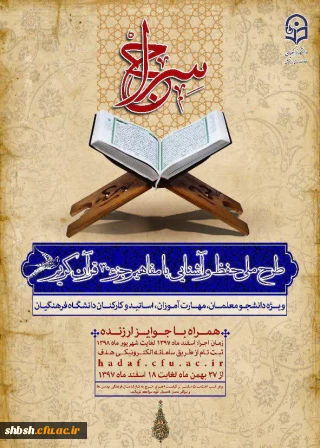 سراج
طرح ملی حفظ و آشنایی با مفاهیم جزء ۳۰ قرآن کریم
ویژه دانشجو معلمان، مهارت آموزان، اساتید و کارکنان دانشگاه فرهنگیان
همراه با جوایز ارزنده
زمان اجرا: اسفند ماه ۱۳۹۷ لغایت شهریور ماه ۱۳۹۸
ثبت نام از طریق سامانه الکترونیکی هدف
hadaf.cfu.ac.ir
از ۲۷ بهمن ماه لغایت ۱۸ اسفند ماه ۱۳۹۷
shbsh.cfu.ac.ir